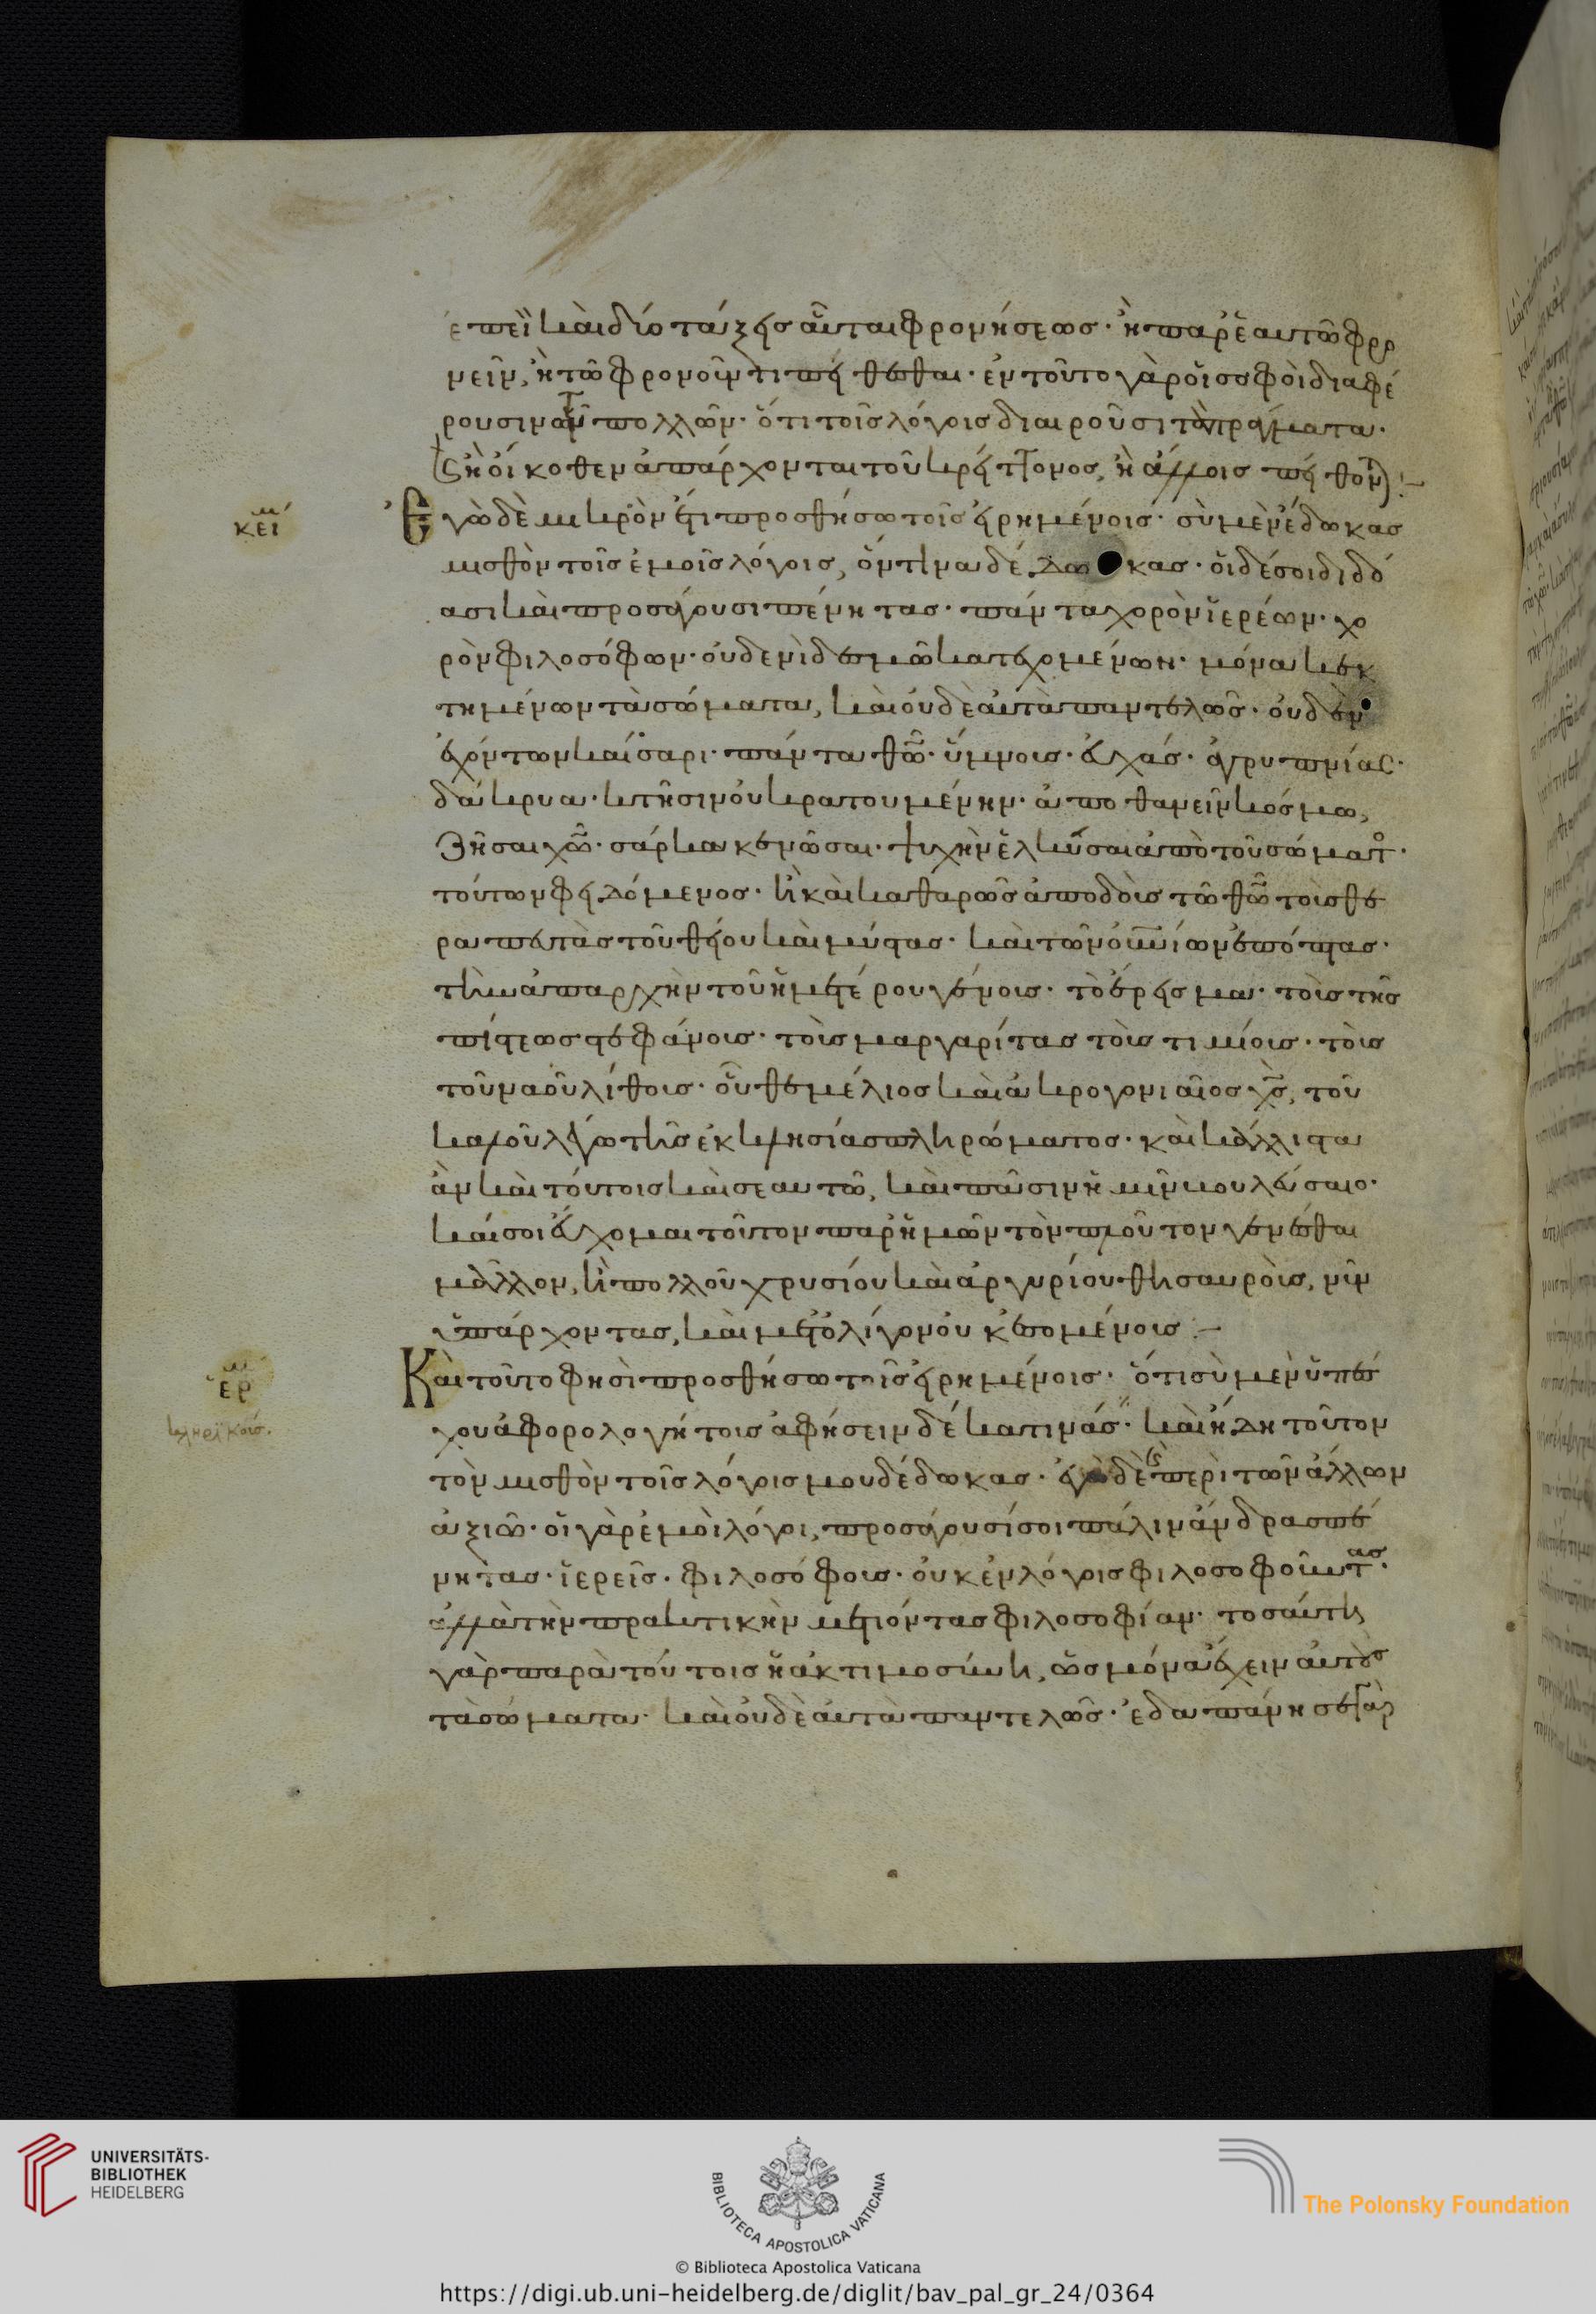 ἐπεὶ καὶ δύο τάξεις αὗται φρονήσεως· ἢ παρ' ἑαυτῶ φρο
νεῖν, ἢ τῶ φρονοῦντι πείθεσθαι· ἐν τοῦτο γὰρ οἱ σοφοὶ διαφέ
ρουσι τῶν πολλῶν· ὅτι τοῖς λόγοις διαιροῦσι τὰ πράγματα·
καὶ ἢ οἴκοθεν ἀπάρχονται τοῦ κρείττονος, ἢ ἄλλοις πείθονται:-
κει
Ἐγὼ δὲ μικρὸν ἔτι προσθήσω τοῖς εἰρημένοις· σὺ μὲν ἔδωκας
μισθὸν τοῖς ἐμοῖς λόγοις, ὅντινα δέδωκας· οἱ δέ σοι διδό
ασι καὶ προσάγουσι πένητας· πάντα χορὸν ἱερέων· χο
ρὸν φιλοσόφων· οὐδενὶ δεσμῶ κατεχομένων· μόνα κεκ
τημένων τὰ σώματα, καὶ οὐδὲ αὐτὰ παντελῶς· οὐδὲν
ἐχόντων καίσαρι· πάντα θῶ· ὕμνους· εὐχάς· ἀγρυπνίας·
δάκρυα· κτῆσιν οὐ κρατουμένην· ἀποθανεῖν κόσμω,
ζῆσαι χῶ· σάρκα κενῶσαι· ψυχὴν ἑλκῦσαι ἀπὸ τοῦ σώματος·
τούτων φειδόμενος· ἢ καὶ καθαρῶς ἀποδοὺς τῶ θῶ τοὺς θε
ραπευτὰς τοῦ θείου καὶ μύστας· καὶ τῶν οὐνίων ἐπόπτας·
τὴν ἀπαρχὴν τοῦ ἡμετέρου γένους· τὸ ἔρεισμα· τοὺς τῆς
πίστεως στεφάνους· τοὺς μαργαρίτας τοὺς τιμίους· τοὺς
τοῦ ναοῦ λίθους· οὗ θεμέλιος καὶ ἀκρογονιαῖος χς, τοῦ
καλοῦ λέγω τῆς ἐκκλησίας πληρώματος· καὶ κάλλιστα
ἂν καὶ τούτοις καὶ σεαυτῶ, καὶ πᾶσιν ἡμῖν βουλεύσαιο·
καί σοι εὔχομαι τοῦτον παρ' ἡμῶν τὸν πλοῦτον γενέσθαι
μᾶλλον, ἢ πολλοῦ χρυσίου καὶ ἀργυρίου θησαυροὺς, νῦν
ὑπάρχοντας, καὶ μετ' ὀλίγον οὐκ ἐσομένους:-
ἑρ
Καὶ τοῦτο φησὶ προσθήσω τοῖς εἰρημένοις· ὅτι σὺ μὲν ὑπέσ
χου ἀφορολογήτους ἀφήσειν δέκα τινάς· καὶ ἤδη τοῦτον
τὸν μισθὸν τοῖς λόγοις μου δέδωκας· ἐγὼ δὲ καὶ περὶ τῶν ἄλλων
ἀξιῶ· οἱ γὰρ ἐμοὶ λόγοι, προσάγουσί σοι πάλιν ἄνδρας πέ
νητας· ἱερεῖς· φιλοσόφους· οὐκ ἐν λόγοις φιλοσοφοῦντας·
ἀλλὰ τὴν πρακτικὴν μετιόντας φιλοσοφίαν· τοσαύτη
γὰρ παρὰ τούτοις ἡ ἀκτιμοσύνη, ὡς μόνα ἔχειν αὐτοὺς
τὰ σώματα· καὶ οὐδὲ αὐτὰ παντελῶς· ἐδαπάνησε γὰρ
UNIVERSITÄTS-
BIBLIOTHEK
HEIDELBERG
BIBLIOTECA APOSTOLICA VATICANA
The Polonsky Foundation
© Biblioteca Apostolica Vaticana
https://digi.ub.uni-heidelberg.de/diglit/bav_pal_gr_24/0364